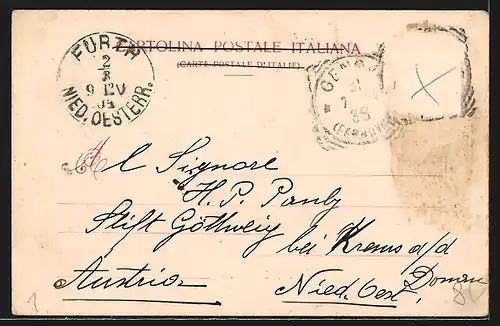 CARTOLINA POSTALE ITALIANA
(CARTE POSTALE D'ITALIE)
FURTH
2
8
9-12V
04
NIED. OESTERR.
GENOVA
31
7
(FERROVIA)
Al Signore
H. P. Pauly
Stift Göttweig
bei Krems a/d
Donau
Austria
Nied. Oest.